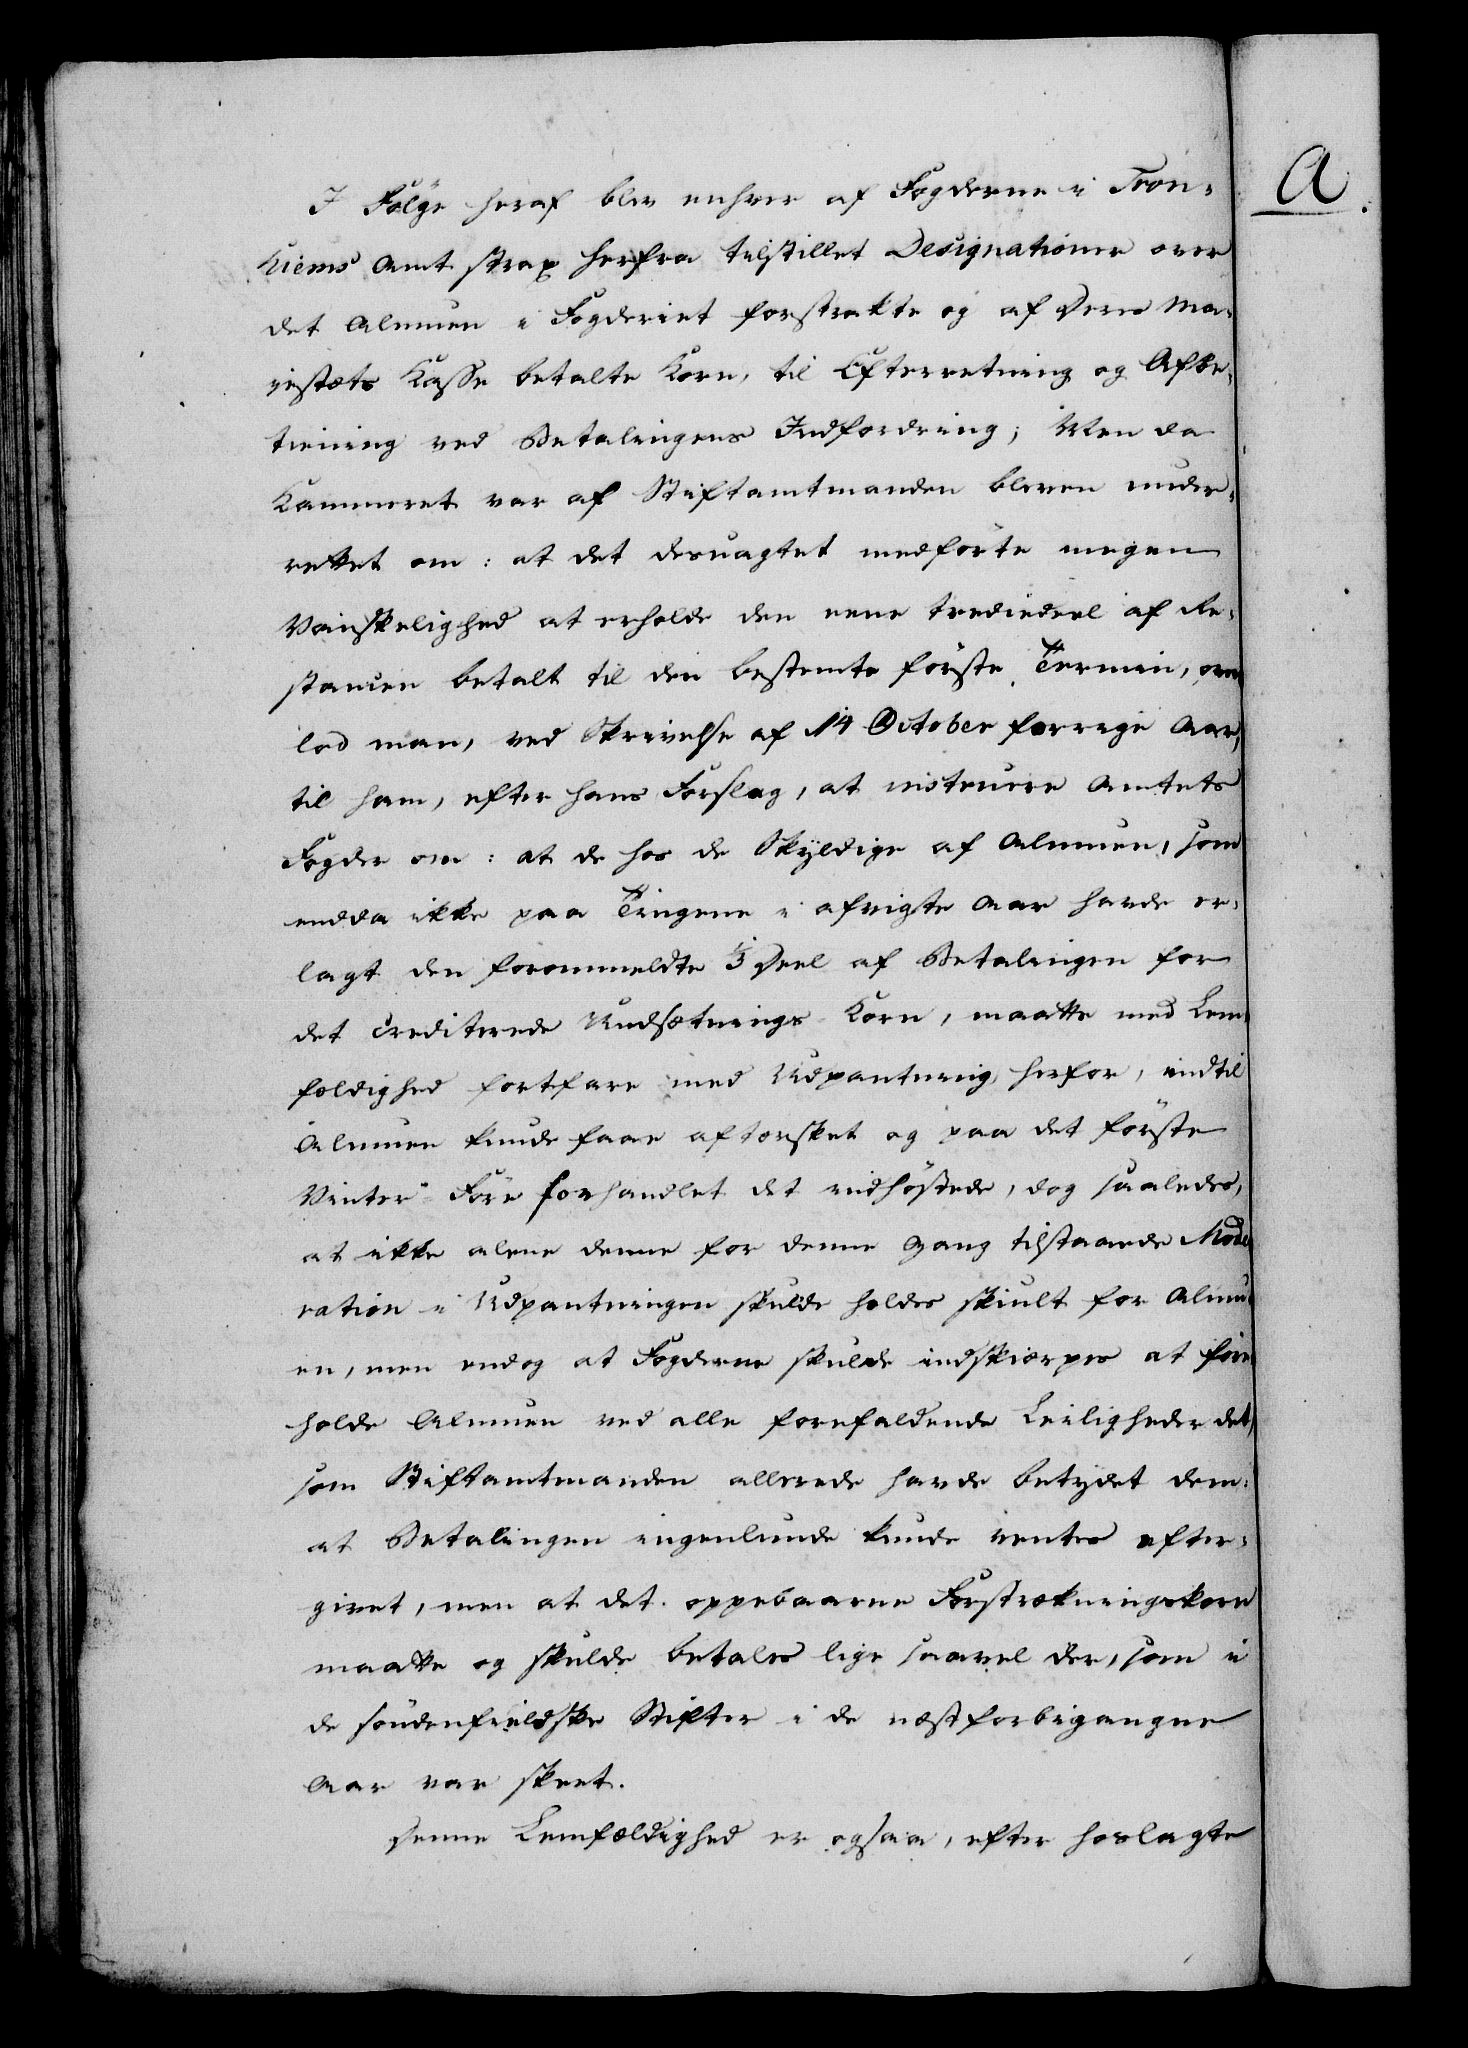 A.
I Følge heraf blev enhver af Fogderne i Tron-
hiems Amt strax herfra tilstillet Designationer over
det Almuen i Fogderiet forstrakte og af Deres Ma-
jestæts Kasse betalte Korn, til Efterretning og Afbe-
tiening ved Betalingens Indfordring; Men da
Kammeret var af Stiftamtmanden bleven under-
rettet om: at det desuagtet medførte megen
Vanskelighed at erholde den eene trediedeel af Re-
stancen betalt til den bestemte første Termin, over
lod man, ved Skrivelse af 14 October forrige Aar,
til ham, efter hans Forslag, at instruere Amtets
Fogder om: at de hos de Skyldige af Almuen, som
endda ikke paa Tingene i afvigte Aar havde er-
lagt den forommeldte 1/3 Deel af Betalingen for
det crediterede Undsætnings Korn, maatte med Lem-
fældighed fortfare med Udpantning herfor, indtil
Almuen kunde faae aftorsket og paa det første
Vinter-Føre forhandlet det indhøstede, dog saaledes,
at ikke alene denne for denne Gang tilstaaede Mode-
ration i Udpantningen skulde holdes skiult for Almu-
en, men endog at Fogderne skulde indskiærpes at fore-
holde Almuen ved alle forefaldende Leiligheder det,
som Stiftamtmanden allerede havde betydet dem:
at Betalingen ingenlunde kunde ventes efter-
givet, men at det oppebaarne Forstrækningskorn
maatte og skulde betales lige saavel der, som i
de søndenfieldske Stifter i de næstforbigangne
Aar var skeet.
Denne Lemfældighed er ogsaa, efter hoslagte